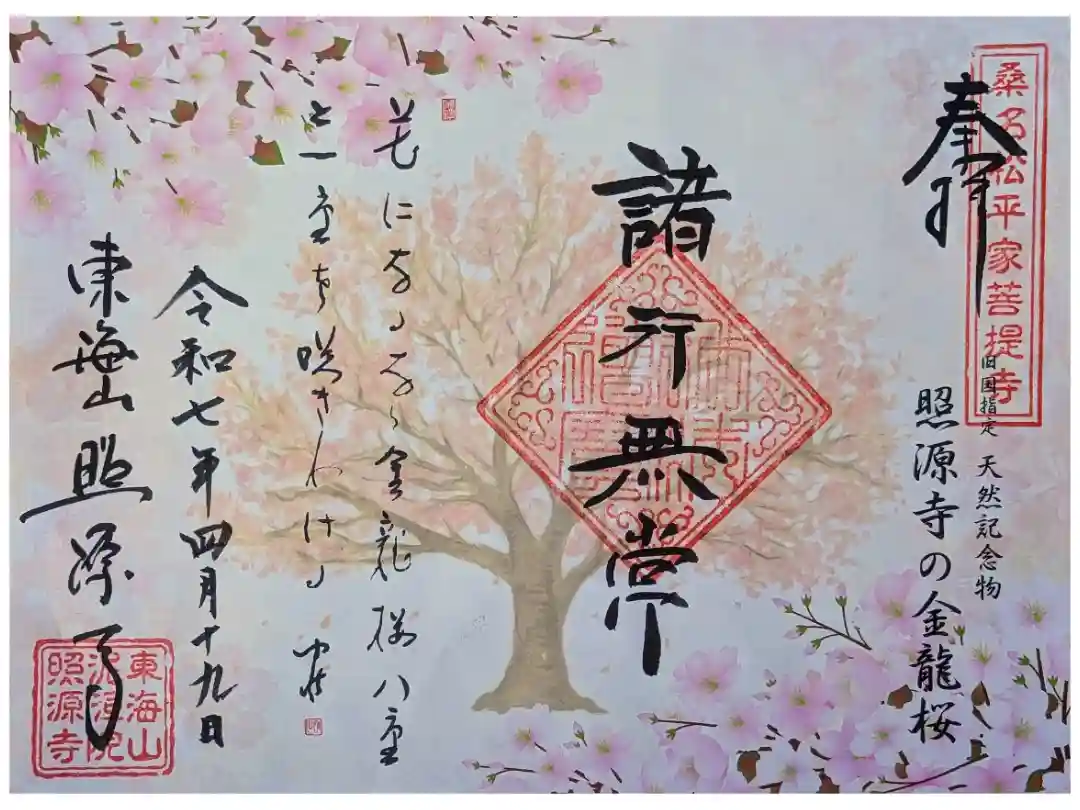 奉拝
桑名松平家菩提寺
旧国指定 天然記念物
照源寺の金龍桜
諸行無常
金龍桜八重
と一重を咲きわける
令和七年四月十九日
東海山照源寺
東海山
照源寺